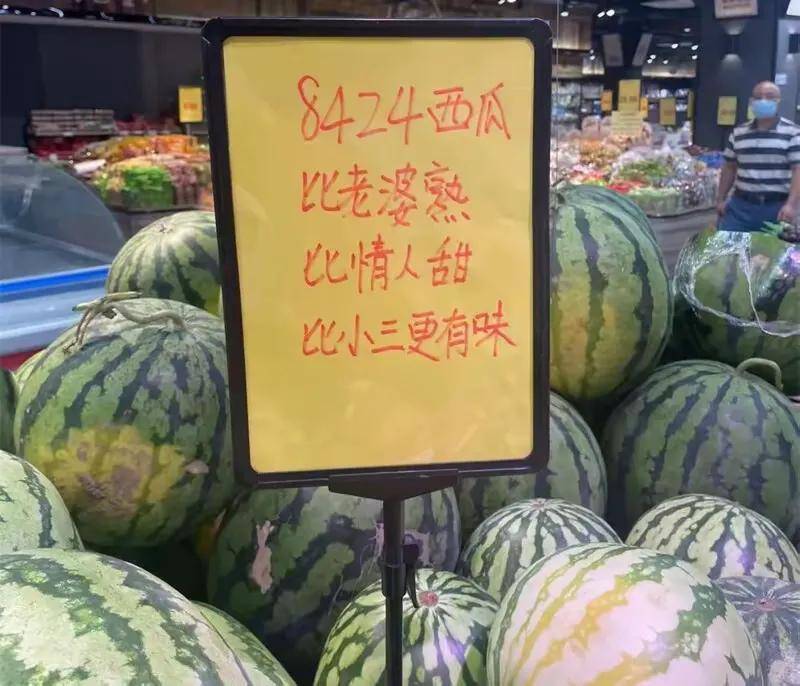 8424西瓜
比老婆熟
比情人甜
比小三更有味